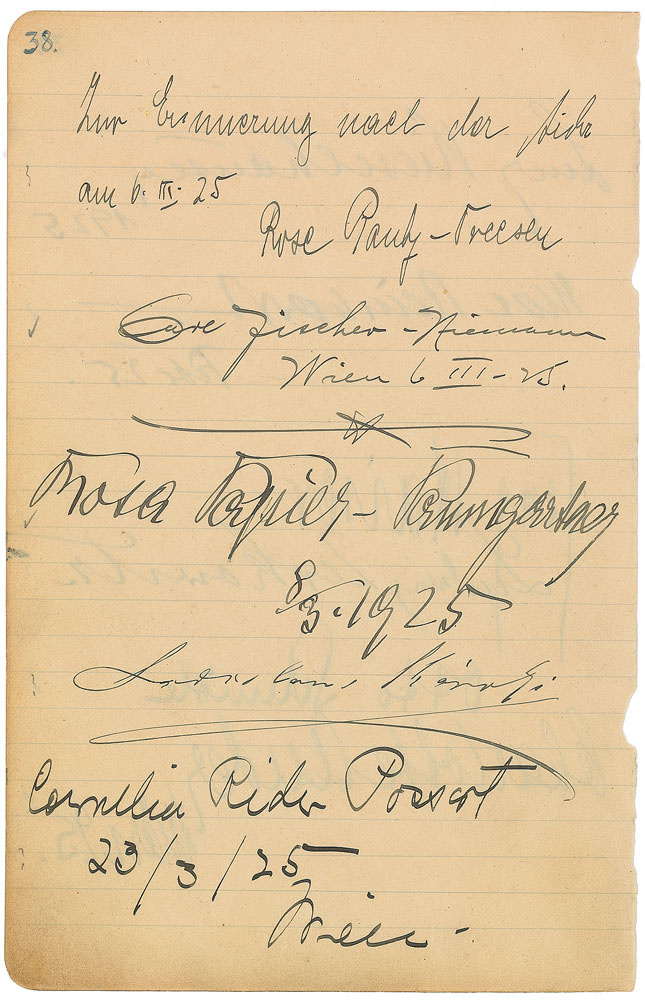 38.
Zur Erinnerung nach der Aida
am 6. III. 25
Rose Pauly-Dreesen
Carl Fischer-Niemann
Wien 6 III - 25.
Rosa Papier-Paumgartner
8/3. 1925
Ladislaus
Cornelia Rider Possart
23/3/25
Wien -